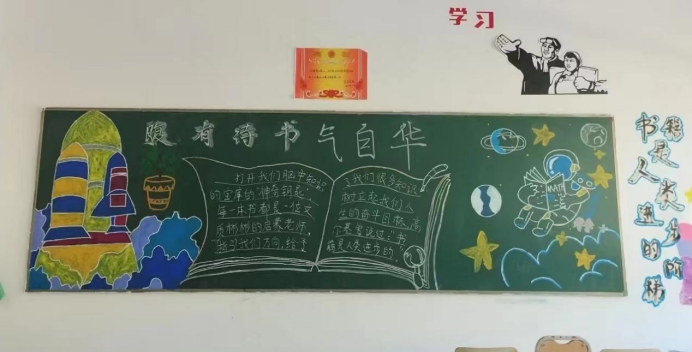 学习
腹有诗书气自华
打开我们脑中知识
的宝库的神奇钥匙,
每一本书都是一位文
质彬彬的启蒙老师,
指引我们方向,给予
了我们很多知识
树立起我们人
生的奋斗目标。高
尔基曾说过:书
籍是人类进步的。
MATH
书籍是人类进步的阶梯